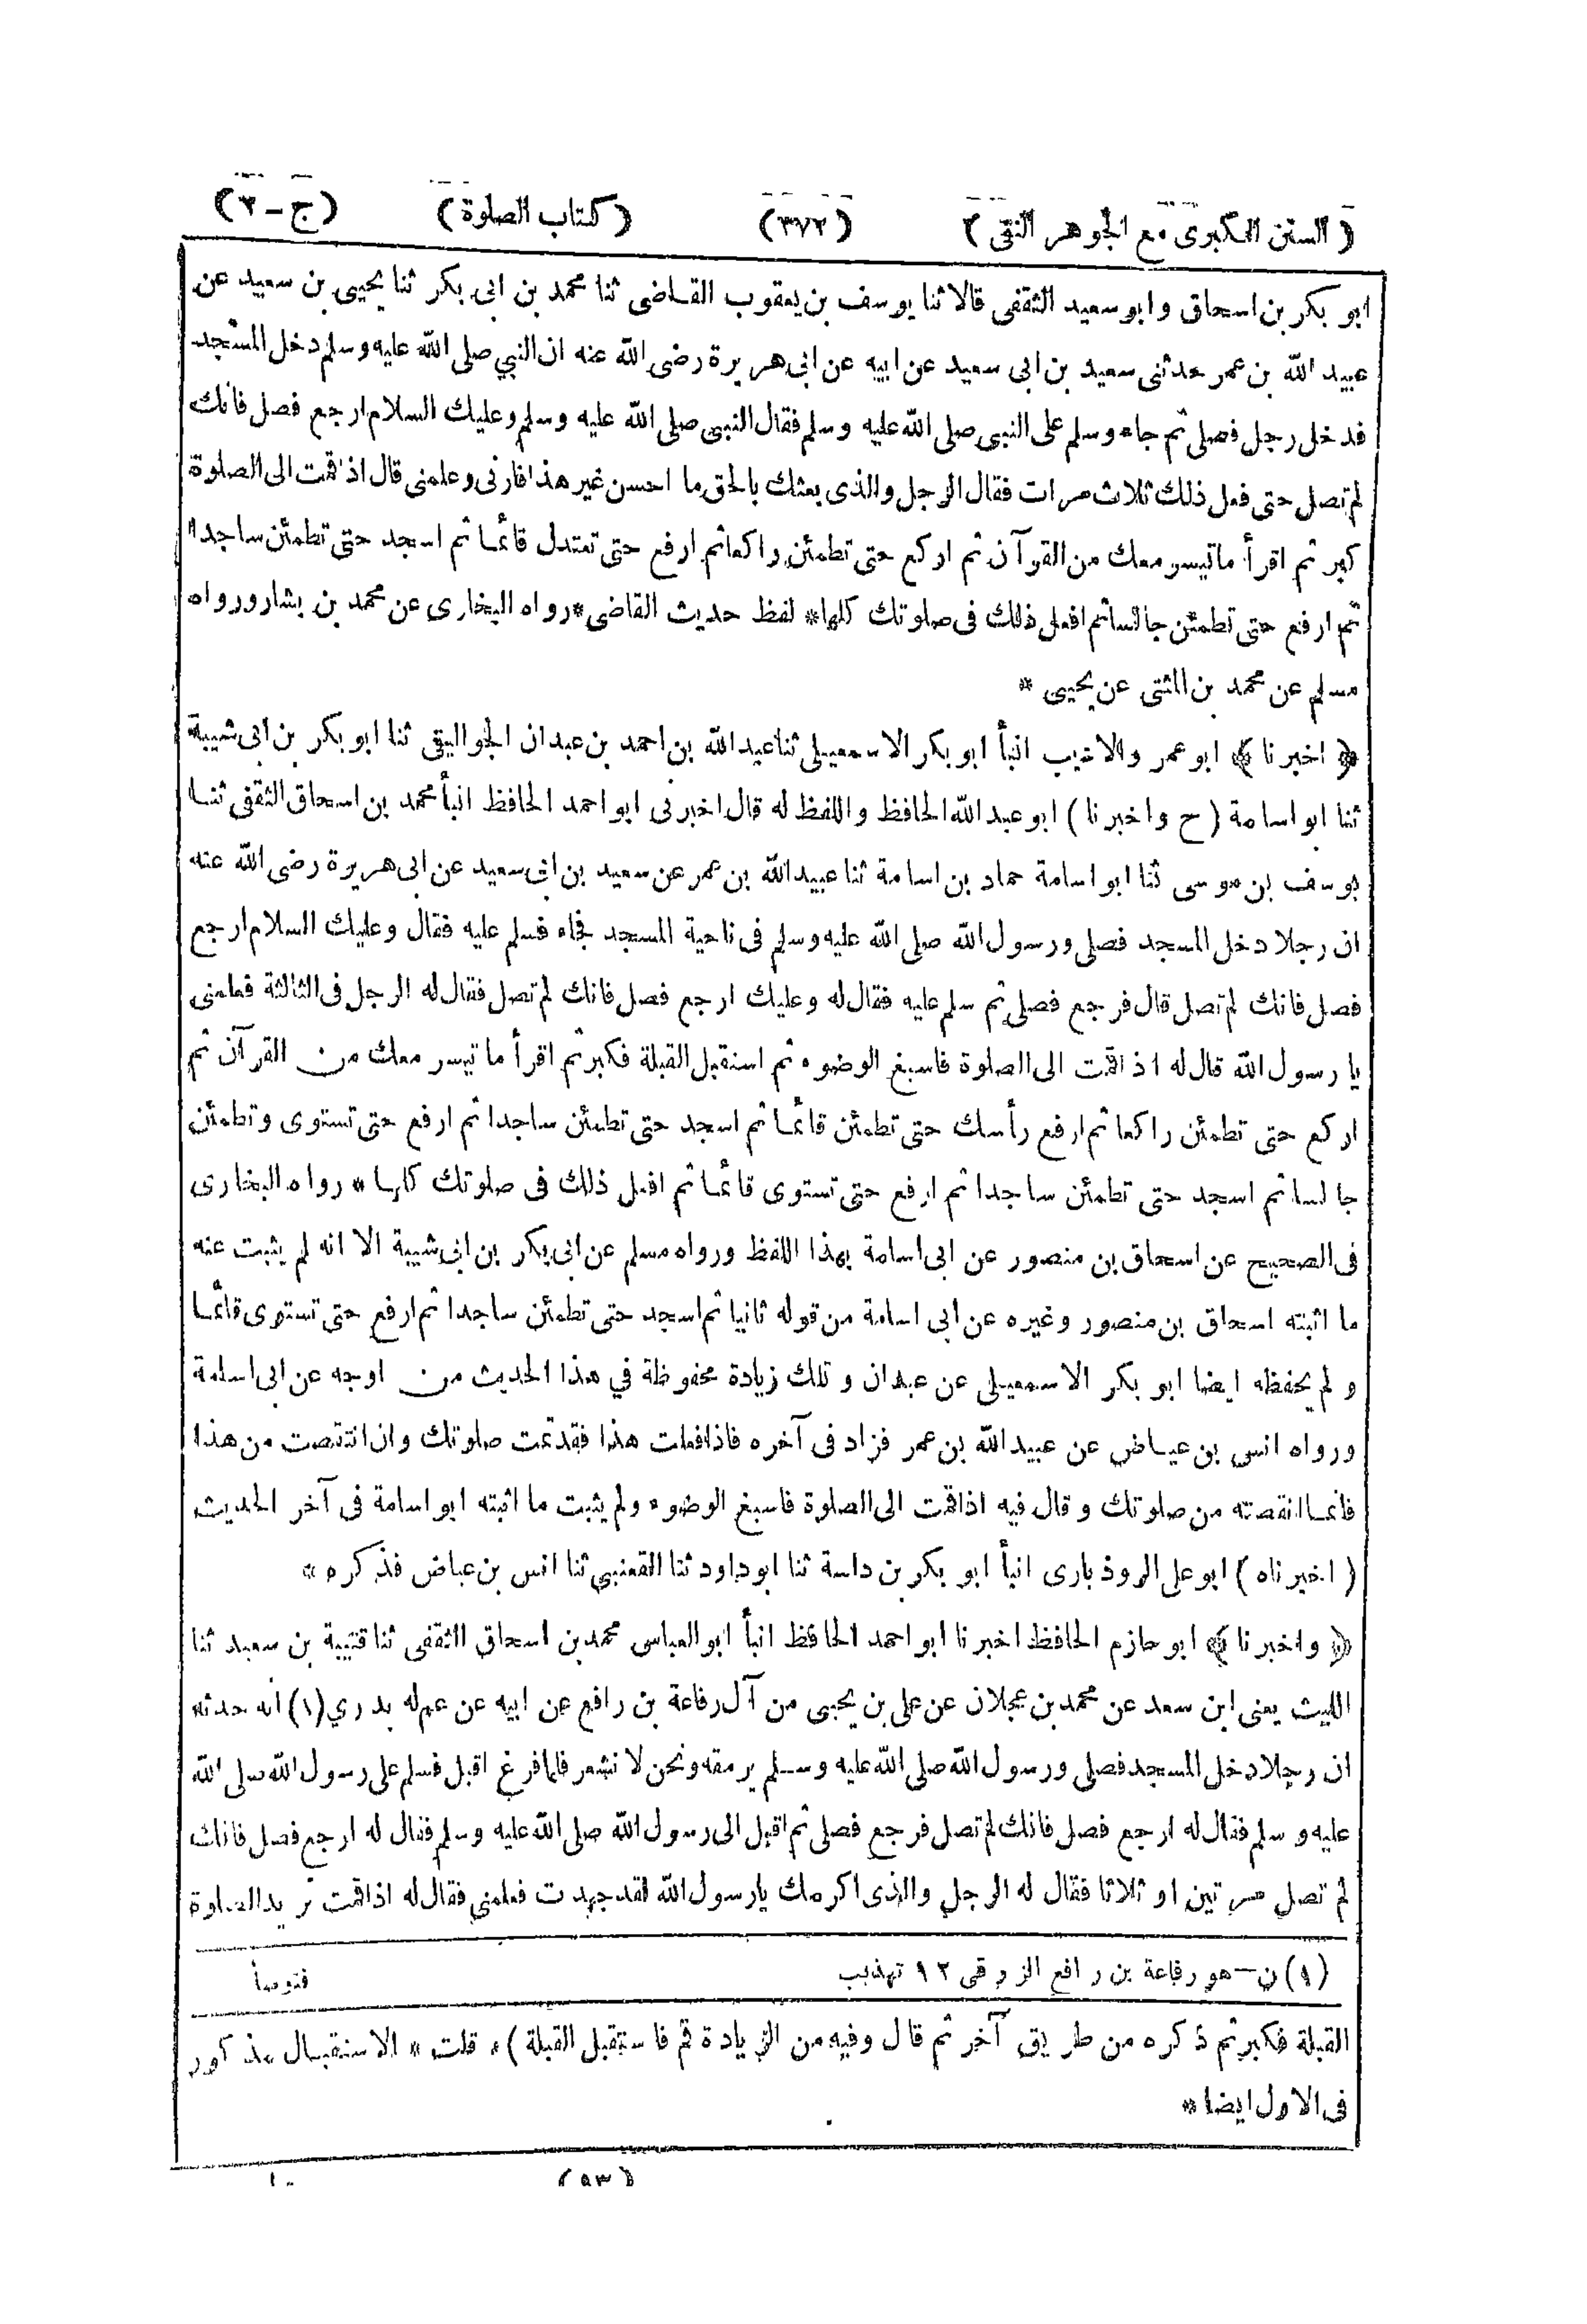 ( السنن الكبرى مع الجوهر النقى ) (٣٧٢) ( كتاب الصلوة ) (ج – ٢)
ابو بكر بن اسحاق وابو سعيد الثقفى قالا ثنا يوسف بن يعقوب القاضى ثنا محمد بن ابى بكر ثنا يحيى بن سعيد عن
عبيد الله بن عمر حدثنى سعيد بن ابى سعيد عن ابيه عن ابى هريرة رضى الله عنه ان النبي صلى الله عليه وسلم دخل المسجد
فدخل رجل فصلى ثم جاء وسلم على النبى صلى الله عليه وسلم فقال النبى صلى الله عليه وسلم وعليك السلام ارجع فصل فانك
لم تصل حتى فعل ذلك ثلاث مرات فقال الرجل والذى بعثك بالحق ما احسن غير هذا فارنى وعلمنى قال اذا قمت الى الصلوة
كبر ثم اقرأ ما تيسر معك من القرآن ثم اركع حتى تطمئن راكعا ثم ارفع حتى تعتدل قائما ثم اسجد حتى تطمئن ساجدا
ثم ارفع حتى تطمئن جالسا ثم افعل ذلك فى صلوتك كلها * لفظ حديث القاضى * رواه البخارى عن محمد بن بشار ورواه
مسلم عن محمد بن المثنى عن يحيى *
﴿ اخبرنا ﴾ ابو عمرو الاديب انبأ ابو بكر الاسمعيلى ثنا عبد الله بن احمد بن عبدان الجواليقى ثنا ابو بكر بن ابى شيبة
ثنا ابو اسامة ( ح واخبرنا ) ابو عبد الله الحافظ واللفظ له قال اخبرنى ابو احمد الحافظ انبأ محمد بن اسحاق الثقفى ثنا
يوسف بن موسى ثنا ابو اسامة حماد بن اسامة ثنا عبيد الله بن عمر عن سعيد بن ابى سعيد عن ابى هريرة رضى الله عنه
ان رجلا دخل المسجد فصلى ورسول الله صلى الله عليه وسلم فى ناحية المسجد فجاء فسلم عليه فقال وعليك السلام ارجع
فصل فانك لم تصل قال فرجع فصلى ثم سلم عليه فقال له وعليك ارجع فصل فانك لم تصل فقال له الرجل فى الثالثة فعلمنى
يا رسول الله قال له اذا قمت الى الصلوة فاسبغ الوضوء ثم استقبل القبلة فكبر ثم اقرأ ما تيسر معك من القرآن ثم
اركع حتى تطمئن راكعا ثم ارفع رأسك حتى تطمئن قائما ثم اسجد حتى تطمئن ساجدا ثم ارفع حتى تستوى وتطمئن
جالسا ثم اسجد حتى تطمئن ساجدا ثم ارفع حتى تستوى قائما ثم افعل ذلك فى صلوتك كلها * رواه البخارى
فى الصحيح عن اسحاق بن منصور عن ابى اسامة بهذا اللفظ ورواه مسلم عن ابى بكر بن ابى شيبة الا انه لم يثبت عنه
ما اثبته اسحاق بن منصور وغيره عن ابى اسامة من قوله ثانيا ثم اسجد حتى تطمئن ساجدا ثم ارفع حتى تستوى قائما
ولم يحفظه ايضا ابو بكر الاسمعيلى عن عبدان وتلك زيادة محفوظة في هذا الحديث من اوجه عن ابى اسامة
ورواه انس بن عياض عن عبيد الله بن عمر فزاد فى آخره فاذا فعلت هذا فقد تمت صلوتك وان انتقصت من هذا
فانما انتقصته من صلوتك وقال فيه اذا قمت الى الصلوة فاسبغ الوضوء ولم يثبت ما اثبته ابو اسامة فى آخر الحديث
( اخبرناه ) ابو على الروذبارى انبأ ابو بكر بن داسة ثنا ابو داود ثنا القعنبي ثنا انس بن عياض فذكره *
﴿ واخبرنا ﴾ ابو حازم الحافظ اخبرنا ابو احمد الحافظ انبأ ابو العباس محمد بن اسحاق الثقفى ثنا قتيبة بن سعيد ثنا
الليث يعنى ابن سعد عن محمد بن عجلان عن على بن يحيى من آل رفاعة بن رافع عن ابيه عن عم له بدري (١) انه حدثه
ان رجلا دخل المسجد فصلى ورسول الله صلى الله عليه وسلم يرمقه ونحن لا نشعر فلما فرغ اقبل فسلم على رسول الله صلى الله
عليه وسلم فقال له ارجع فصل فانك لم تصل فرجع فصلى ثم اقبل الى رسول الله صلى الله عليه وسلم فقال له ارجع فصل فانك
لم تصل مرتين او ثلاثا فقال له الرجل والذى اكرمك يا رسول الله لقد جهدت فعلمنى فقال له اذا قمت تريد الصلوة
(١) ن – هو رفاعة بن رافع الزرقى ١٢ تهذيب
فتوضأ
القبلة فكبر ثم ذكره من طريق آخر ثم قال وفيه من الزيادة قم فاستقبل القبلة ) * قلت * الاستقبال مذكور
فى الاول ايضا *
(٥٣)